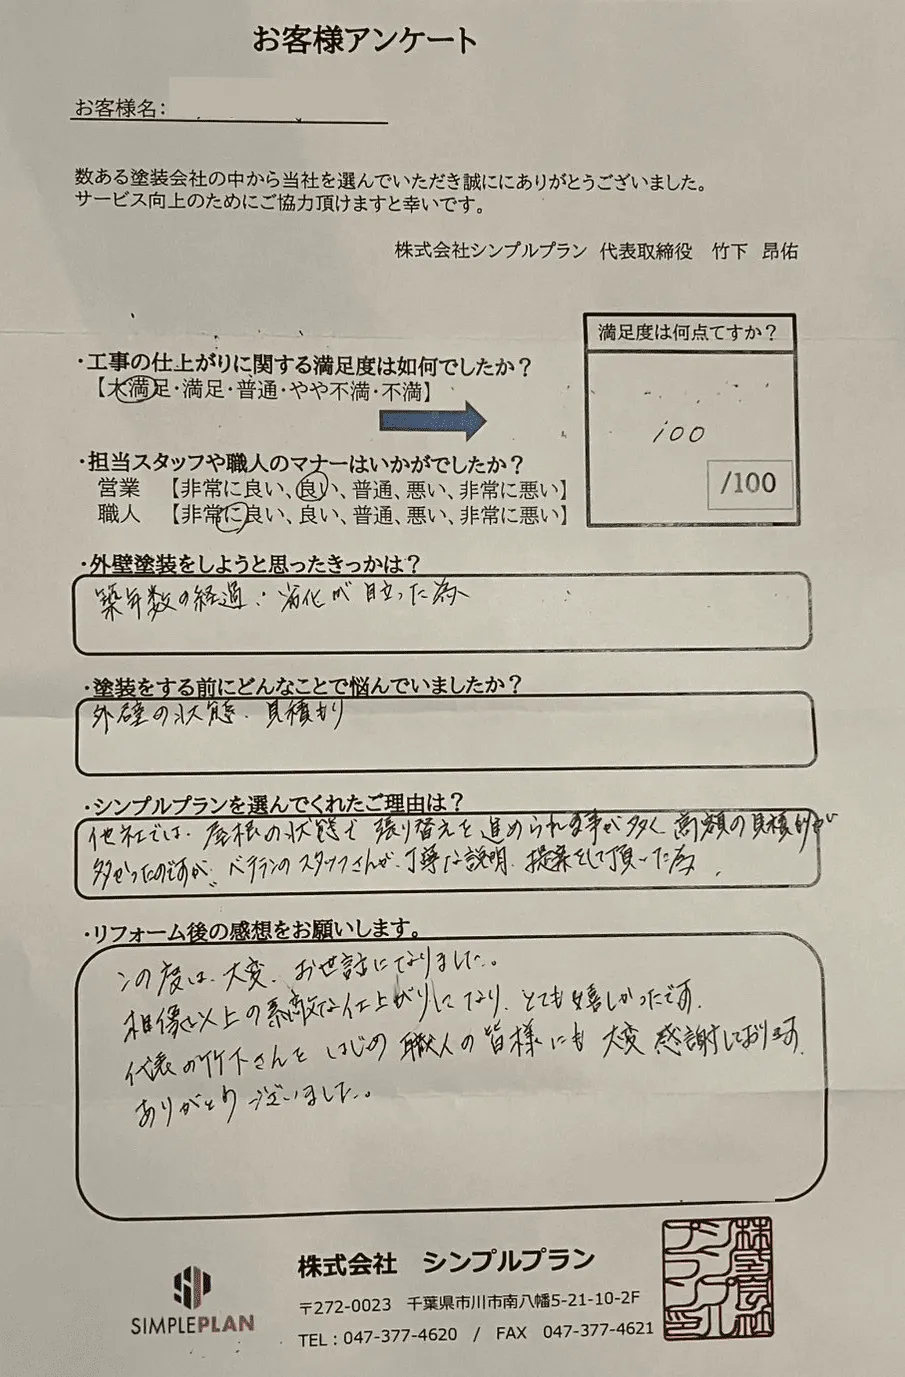 お客様アンケート
お客様名:
数ある塗装会社の中から当社を選んでいただき誠ににありがとうございました。
サービス向上のためにご協力頂けますと幸いです。
株式会社シンプルプラン 代表取締役 竹下 昂佑
満足度は何点てすか?
100
/100
・工事の仕上がりに関する満足度は如何でしたか?
【大満足・満足・普通・やや不満・不満】
・担当スタッフや職人のマナーはいかがでしたか?
営業 【非常に良い、良い、普通、悪い、非常に悪い】
職人 【非常に良い、良い、普通、悪い、非常に悪い】
・外壁塗装をしようと思ったきっかは?
築年数の経過、劣化が目立った為
・塗装をする前にどんなことで悩んでいましたか?
外壁の状態、見積もり
・シンプルプランを選んでくれたご理由は?
他社では、屋根の状態で張り替えを進められる事が多く、高額の見積もりが
多かったのですが、ベテランのスタッフさんが、丁寧な説明、提案をして頂いた為、
・リフォーム後の感想をお願いします。
この度は、大変、お世話になりました。
想像以上の素敵な仕上がりになり、とても嬉しかったです。
代表の竹下さんをはじめ職人の皆様にも大変感謝しております。
ありがとうございました。
株式会社 シンプルプラン
〒272-0023 千葉県市川市南八幡5-21-10-2F
TEL:047-377-4620 / FAX 047-377-4621
SIMPLEPLAN
株式会社シンプルプラン